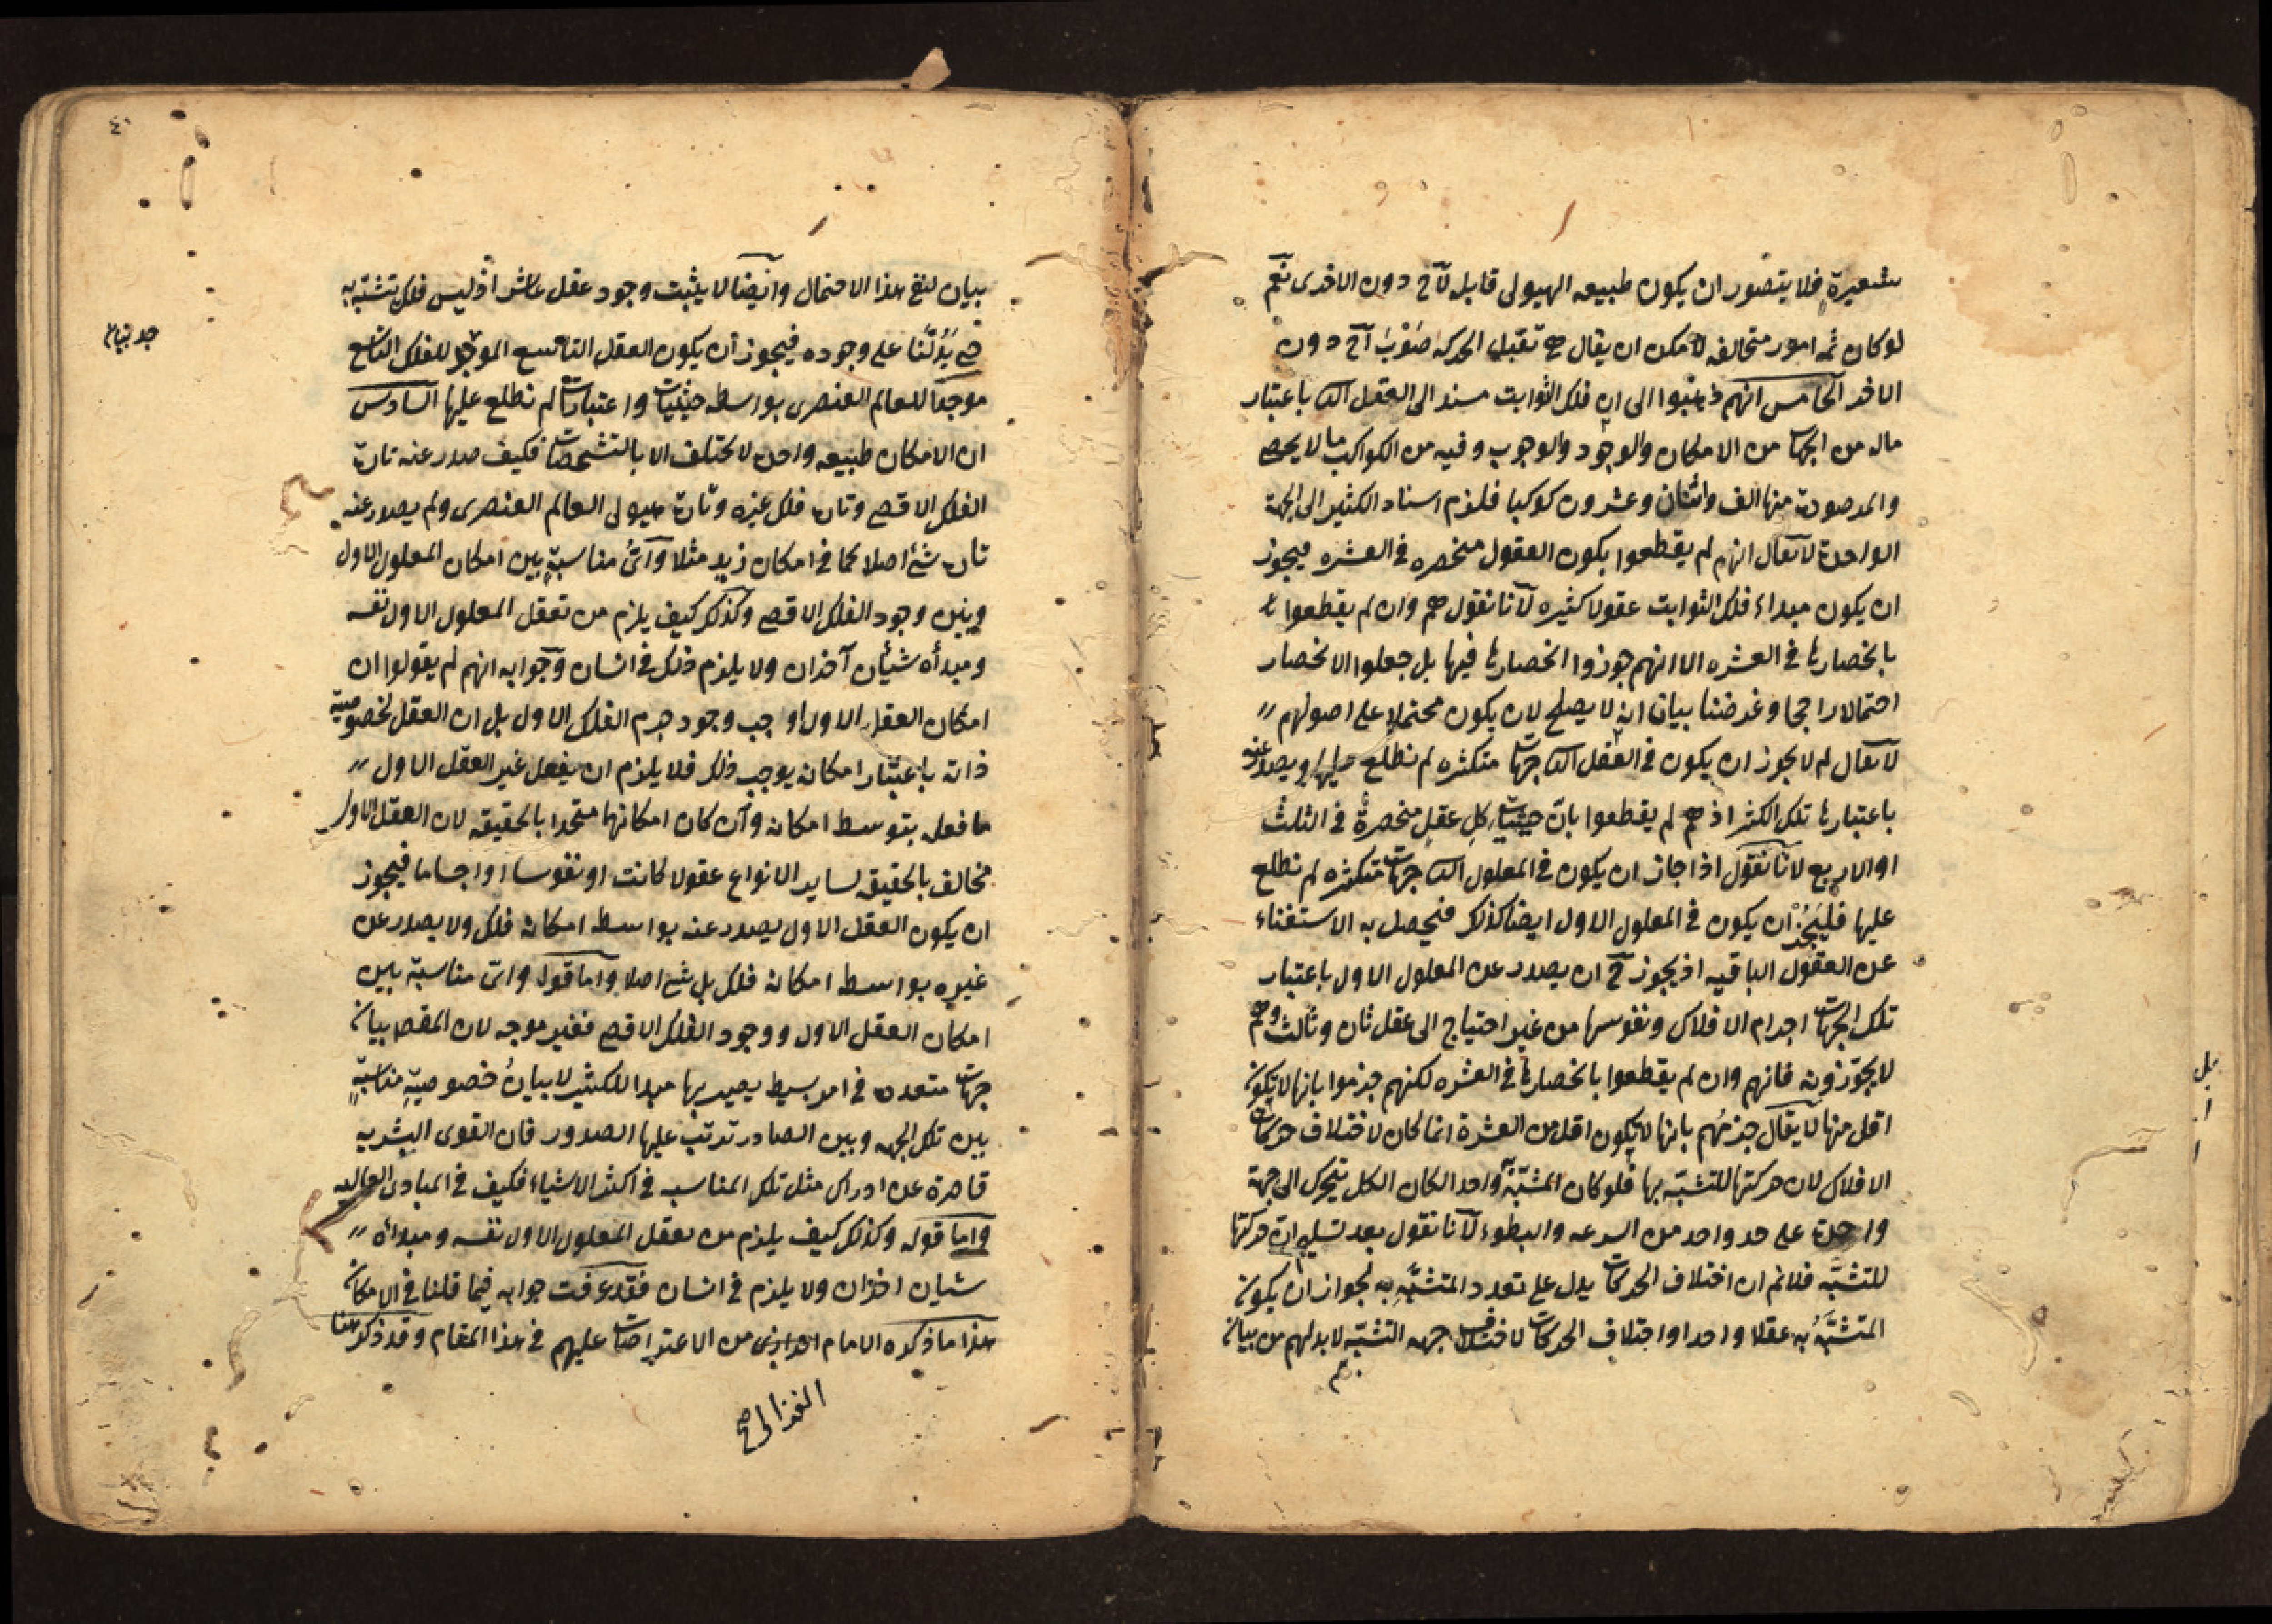 شعيرة فلا يتصور ان يكون طبيعه الهيولى قابله لآخ دون الاخرى نعم
لو كان ثمه امور متخالفه لامكن ان يقال هى تقبل الحركه صَوْبَ آخ دون
الاخر الخامس انهم ذهبوا الى ان فلك الثوابت مسند الى العقل الثا باعتبار
ماله من الجهات من الامكان والوجود والوجوب وفيه من الكواكب ما لا يحصى
والمرصودة منها الف واثنان وعشرون كوكبا فلزم اسناد الكثير الى الجهة
الواحدة لا يقال انهم لم يقطعوا بكون العقول منحصره فى العشره فيجوز
ان يكون مبداء فلك الثوابت عقولا كثيره لانا نقول هم وان لم يقطعوا
بانحصارها فى العشره الا انهم جوزوا انحصارها فيها بل جعلوا الانحصار
احتمالا راجحا وغرضنا بيان انه لا يصلح لان يكون محتملا على اصولهم
لا يقال لم لا يجوز ان يكون فى العقل الثا جهات متكثره لم نطلع عليها ويصدر عنه
باعتبارها تلك الكثر اذ هم لم يقطعوا بانّ حيثيات كل عقل منحصرة فى الثلث
او الاربع لانا نقول اذا جاز ان يكون فى المعلول الثا جهات متكثره لم نطلع
عليها فليَجُز ان يكون فى المعلول الاول ايضا كذلك فيحصل به الاستغناء
عن العقول الباقيه اذ يجوز ح ان يصدر عن المعلول الاول باعتبار
تلك الجهات اجرام الافلاك ونفوسها من غير احتياج الى عقل ثان وثالث وهم
لا يجوّزونه فانهم وان لم يقطعوا بانحصارها فى العشره لكنهم جزموا بانها لا تكون
اقل منها لا يقال جزمُهم بانها لا يكون اقل من العشرة انما كان لاختلاف حركات
الافلاك لان حركتها للتشبّه بها فلو كان المشبّه واحدا لكان الكل يتحرك الى جهة
واحدة على حد واحد من السرعه والبطوء لانا نقول بعد تسليم ان حركتها
للتشبّه فلانم ان اختلاف الحركات يدل على تعدد المتشبَّهِ به لجواز ان يكون
المتشبَّهُ به عقلا واحدا واختلاف الحركات لاختلاف جهه التشبّه لا بد لهم من بيان
بل
٤٠
بيان لنفى هذا الاحتمال وايضا لا يثبت وجود عقل عاشر اذ ليس فلك تشبّه به
حتى يَدُلّنا على وجوده فيجوز ان يكون العقل التاسع الموجد للفلك التاسع
موجدا للعالم العنصرى بواسطه حيثيات واعتبارات لم نطلع عليها السادس
ان الامكان طبيعه واحدة لا يختلف الا بالتشخصات فكيف صدر عنه تارة
الفلك الاقصى وتارة فلك غيره وتارة هيولى العالم العنصرى ولم يصدر عنه
تارة شئ اصلا كما فى امكان زيد مثلا وأىُّ مناسبة بين امكان المعلول الاول
وبين وجود الفلك الاقصى وكذلك كيف يلزم من تعقل المعلول الاول نفسه
ومبدأه شيئان آخران ولا يلزم ذلك فى انسان وجوابه انهم لم يقولوا ان
امكان العقل الاول اوجب وجود جرم الفلك الاول بل ان العقل لخصوصية
ذاته باعتبار امكانه يوجب ذلك فلا يلزم ان يفعل غير العقل الاول
ما فعله بتوسط امكانه وان كان امكانهما متحدا بالحقيقه لان العقل الاول
مخالف بالحقيقه لساير الانواع عقولا كانت او نفوسا او اجساما فيجوز
ان يكون العقل الاول يصدر عنه بواسطه امكانه فلك ولا يصدر عن
غيره بواسطه امكانه فلك بل شئ اصلا واما قوله واىّ مناسبة بين
امكان العقل الاول ووجود الفلك الاقصى فغير موجه لان المقصد بيان
جهات متعدده فى امر بسيط يصير بها مبدا للكثير لا بيانُ خصوصيّةِ مناسبةٍ
بين تلك الجهه وبين الصادر ترتب عليها الصدور فان القوى البشريه
قاصرة عن ادراك مثل تلك المناسبه فى اكثر الاشياء فكيف فى المبادى العاليه
واما قوله وكذلك كيف يلزم من تعقل المعلول الاول نفسه ومبدأه
شيئان اخران ولا يلزم فى انسان فقد عرفت جوابه فيما قلنا فى الامكان
هذا ما ذكره الامام الرازى من الاعتراضات عليهم فى هذا المقام وقد ذكر ههنا
الغزالى